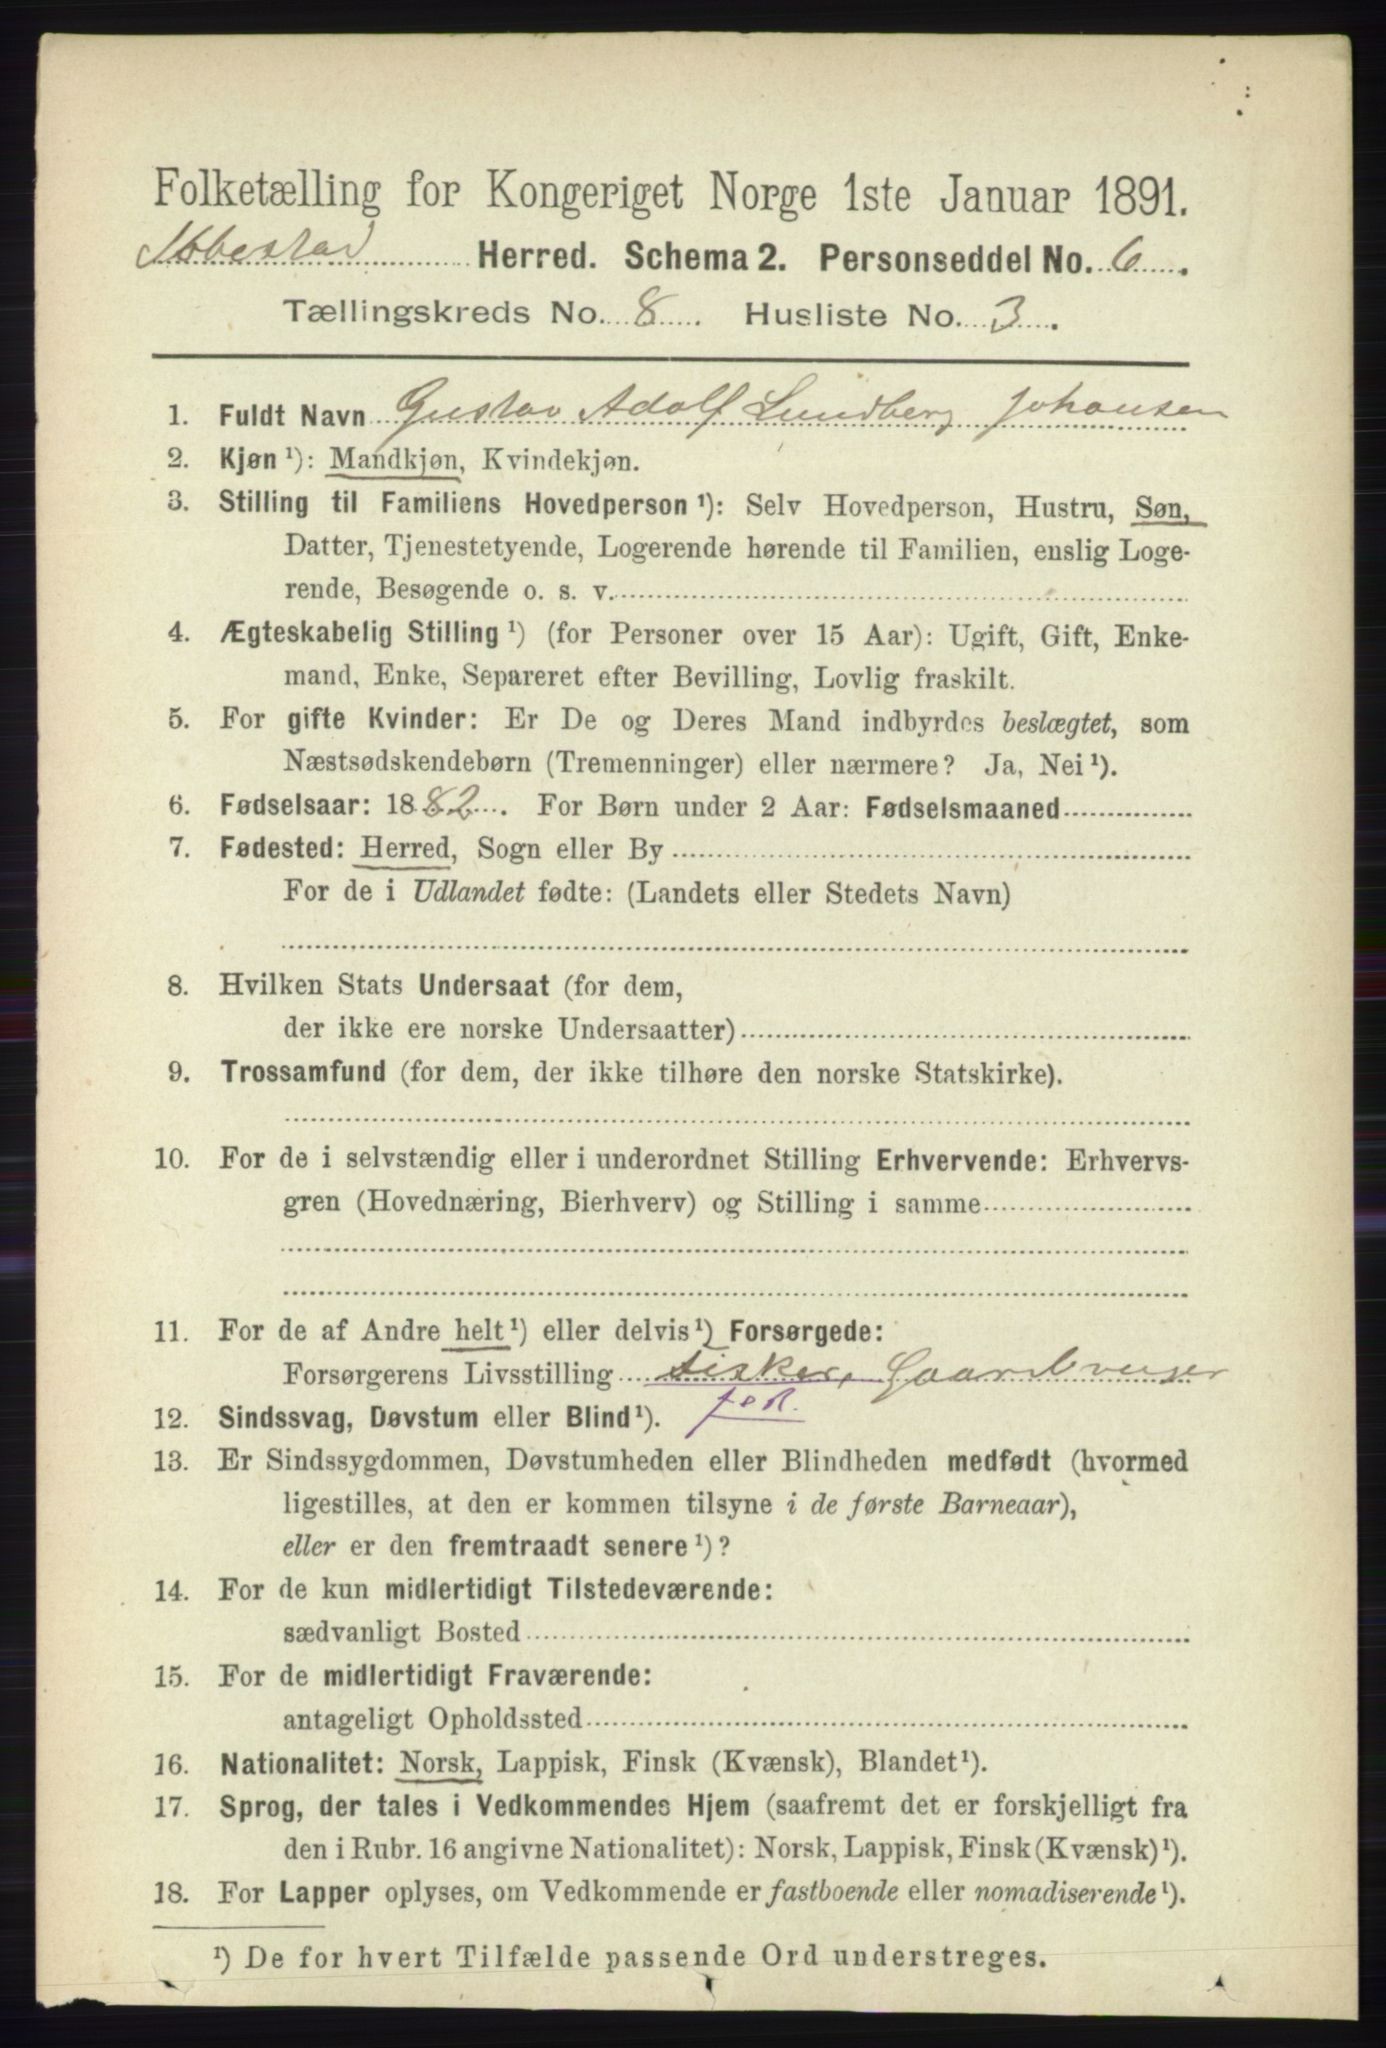 Folketælling for Kongeriget Norge 1ste Januar 1891.
Ibbestad Herred. Schema 2. Personseddel No. 6.
Tællingskreds No. 8. Husliste No. 3.
1. Fuldt Navn Gustav Adolf Lundberg Johansen
2. Kjøn ¹): Mandkjøn, Kvindekjøn.
3. Stilling til Familiens Hovedperson ¹): Selv Hovedperson, Hustru, Søn,
Datter, Tjenestetyende, Logerende hørende til Familien, enslig Loge-
rende, Besøgende o. s. v.
4. Ægteskabelig Stilling ¹) (for Personer over 15 Aar): Ugift, Gift, Enke-
mand, Enke, Separeret efter Bevilling, Lovlig fraskilt.
5. For gifte Kvinder: Er De og Deres Mand indbyrdes beslægtet, som
Næstsødskendebørn (Tremenninger) eller nærmere? Ja, Nei ¹).
6. Fødselsaar: 1882. For Børn under 2 Aar: Fødselsmaaned
7. Fødested: Herred, Sogn eller By
For de i Udlandet fødte: (Landets eller Stedets Navn)
8. Hvilken Stats Undersaat (for dem,
der ikke ere norske Undersaatter)
9. Trossamfund (for dem, der ikke tilhøre den norske Statskirke).
10. For de i selvstændig eller i underordnet Stilling Erhvervende: Erhvervs-
gren (Hovednæring, Bierhverv) og Stilling i samme
11. For de af Andre helt ¹) eller delvis ¹) Forsørgede:
Forsørgerens Livsstilling fisker, Gaardbruger
12. Sindssvag, Døvstum eller Blind ¹).
13. Er Sindssygdommen, Døvstumheden eller Blindheden medfødt (hvormed
ligestilles, at den er kommen tilsyne i de første Barneaar),
eller er den fremtraadt senere ¹)?
14. For de kun midlertidigt Tilstedeværende:
sædvanligt Bosted
15. For de midlertidigt Fraværende:
antageligt Opholdssted
16. Nationalitet: Norsk, Lappisk, Finsk (Kvænsk), Blandet ¹).
17. Sprog, der tales i Vedkommendes Hjem (saafremt det er forskjelligt fra
den i Rubr. 16 angivne Nationalitet): Norsk, Lappisk, Finsk (Kvænsk) ¹).
18. For Lapper oplyses, om Vedkommende er fastboende eller nomadiserende ¹).
¹) De for hvert Tilfælde passende Ord understreges.